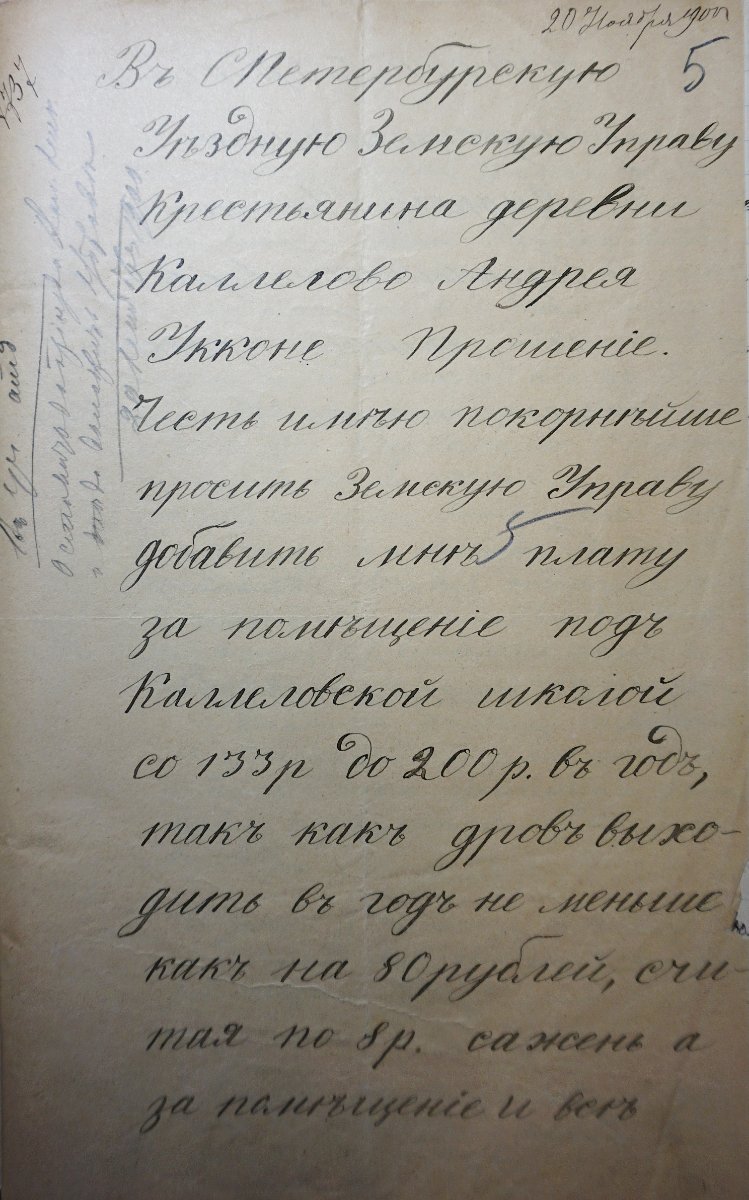 20 Ноября 1900 г
5
Въ СПетербурскую
Уѣздную Земскую Управу
Крестьянина деревни
Каллелово Андрея
Укконе Прошеніе.
Честь имѣю покорнѣйше
просить Земскую Управу
добавить мнѣ плату
за помѣщеніе подъ
Каллеловской школой
со 133р до 200р. въ годъ,
такъ какъ дровъ выхо-
дить въ годъ не меньше
какъ на 80 рублей, счи-
тая по 8р. сажень а
за помѣщеніе и всѣ